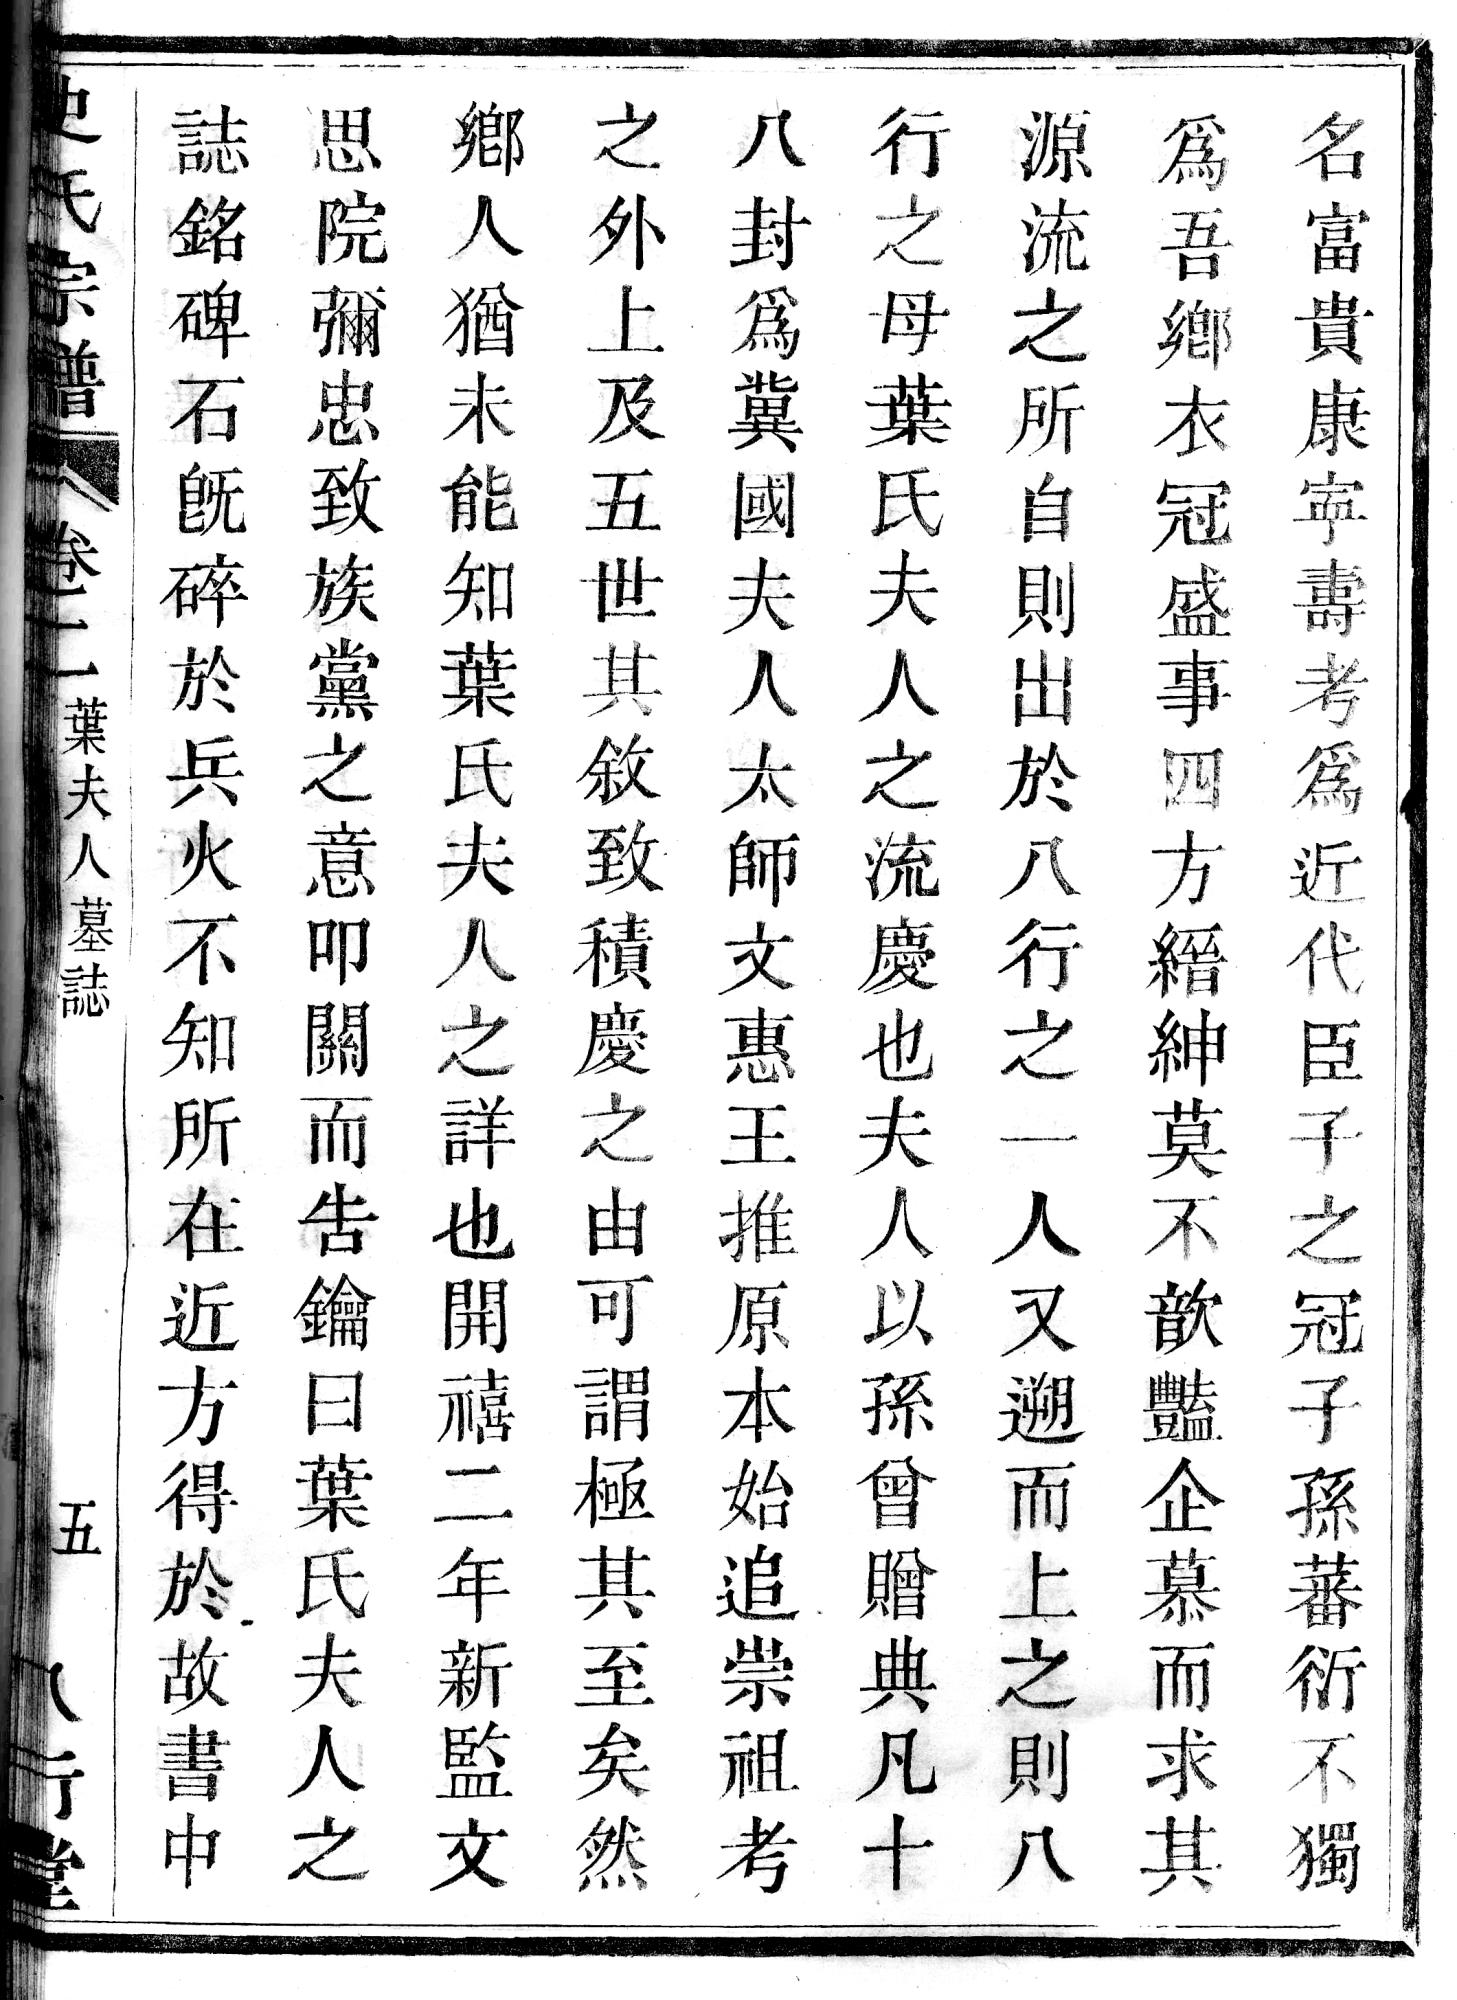 名富貴康寕壽考爲近代臣子之冠子孫蕃衍不獨
爲吾鄉衣冠盛事四方縉紳莫不歆豔企慕而求其
源流之所自則出於八行之一人又遡而上之則八
行之母葉氏夫人之流慶也夫人以孫曾贈典凡十
八封爲冀國夫人太師文惠王推原本始追崇祖考
之外上及五世其敘致積慶之由可謂極其至矣然
鄉人猶未能知葉氏夫人之詳也開禧二年新監文
思院彌忠致族黨之意叩關而告鑰曰葉氏夫人之
誌銘碑石旣碎於兵火不知所在近方得於故書中
史氏宗譜 卷二 葉夫人墓誌 五 八行堂